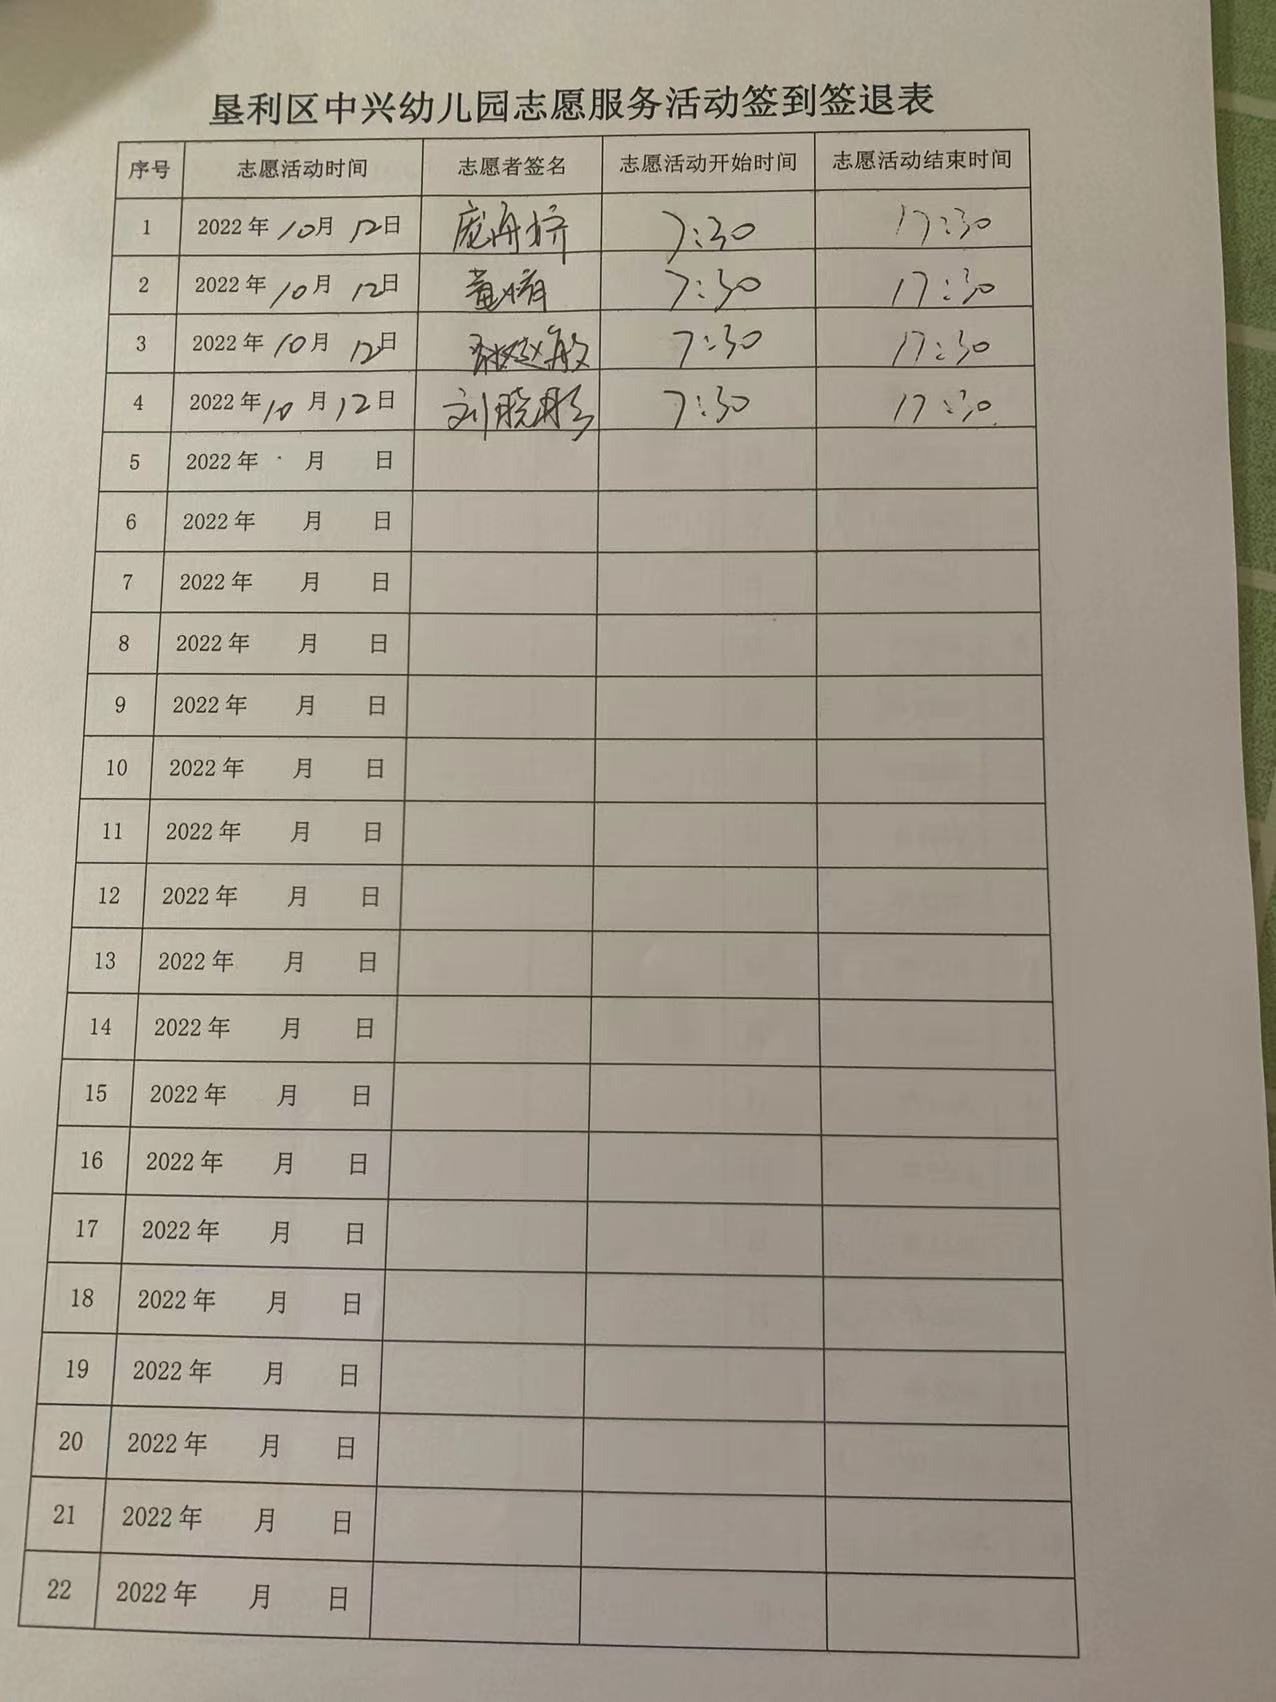 垦利区中兴幼儿园志愿服务活动签到签退表
序号 志愿活动时间 志愿者签名 志愿活动开始时间 志愿活动结束时间
1 2022年10月12日 庞海 7:30 17:30
2 2022年10月12日 黄婧 7:30 17:30
3 2022年10月12日 敏 7:30 17:30
4 2022年10月12日 刘晓彤 7:30 17:30
5 2022年 月 日
6 2022年 月 日
7 2022年 月 日
8 2022年 月 日
9 2022年 月 日
10 2022年 月 日
11 2022年 月 日
12 2022年 月 日
13 2022年 月 日
14 2022年 月 日
15 2022年 月 日
16 2022年 月 日
17 2022年 月 日
18 2022年 月 日
19 2022年 月 日
20 2022年 月 日
21 2022年 月 日
22 2022年 月 日